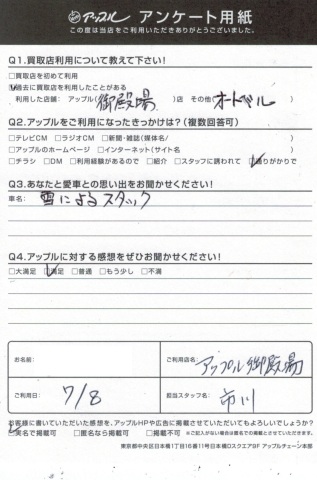 アップル アンケート用紙
この度は当店をご利用いただきありがとうございました。
Q1.買取店利用について教えて下さい!
□買取店を初めて利用
□過去に買取店を利用したことがある
利用した店舗: アップル(御殿場)店 その他(オートバル)
Q2.アップルをご利用になったきっかけは?(複数回答可)
□テレビCM □ラジオCM □新聞・雑誌(媒体名/ )
□アップルのホームページ □インターネット(サイト名 )
□チラシ □DM □利用経験があるので □紹介 □スタッフに誘われて □通りがかりで
Q3.あなたと愛車との思い出をお聞かせください!
車名: 雪によるスタック
Q4.アップルに対する感想をぜひお聞かせください!
□大満足 □満足 □普通 □もう少し □不満
お名前:
ご利用店名: アップル御殿場
ご利用日: 7/8
担当スタッフ名: 市川
お客様に書いていただいた感想を、アップルHPや広告に掲載させていただいてもよろしいでしょうか?
□実名で掲載可 □匿名なら掲載可 □掲載不可 ※ご記入がない場合は匿名での掲載とさせていただきます。
東京都中央区日本橋1丁目16番11号日本橋Dスクエア9F アップルチェーン本部